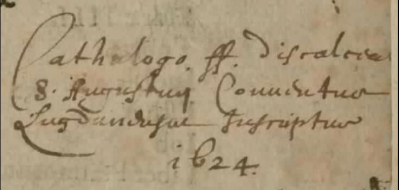 Cathalogo. ff. Discalcea
S. Augustini Conventus
Lugdunensis Inscriptus
1624.